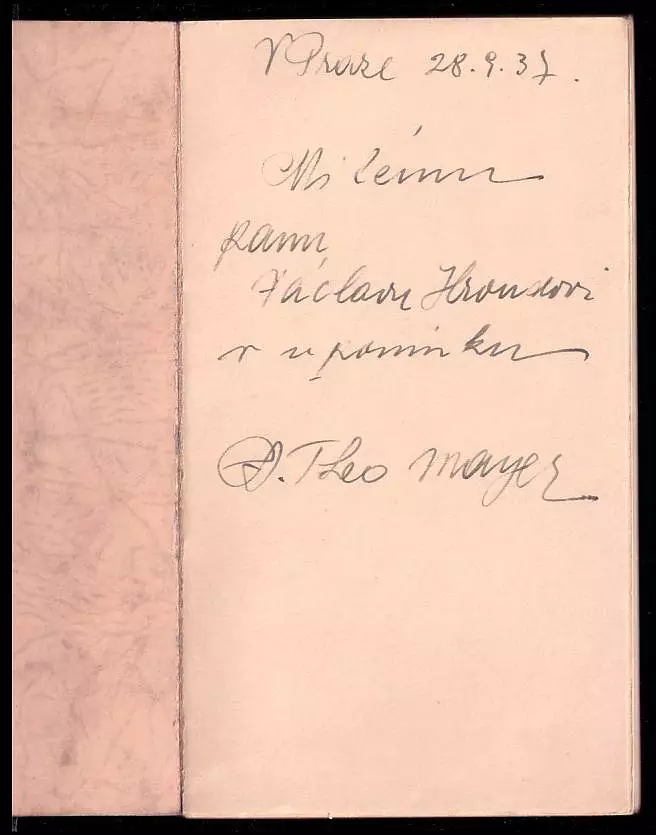 V Praze 28.9.37.
Milému
panu
Václavu Hroudovi
v upomínku
D. Theo Mayer